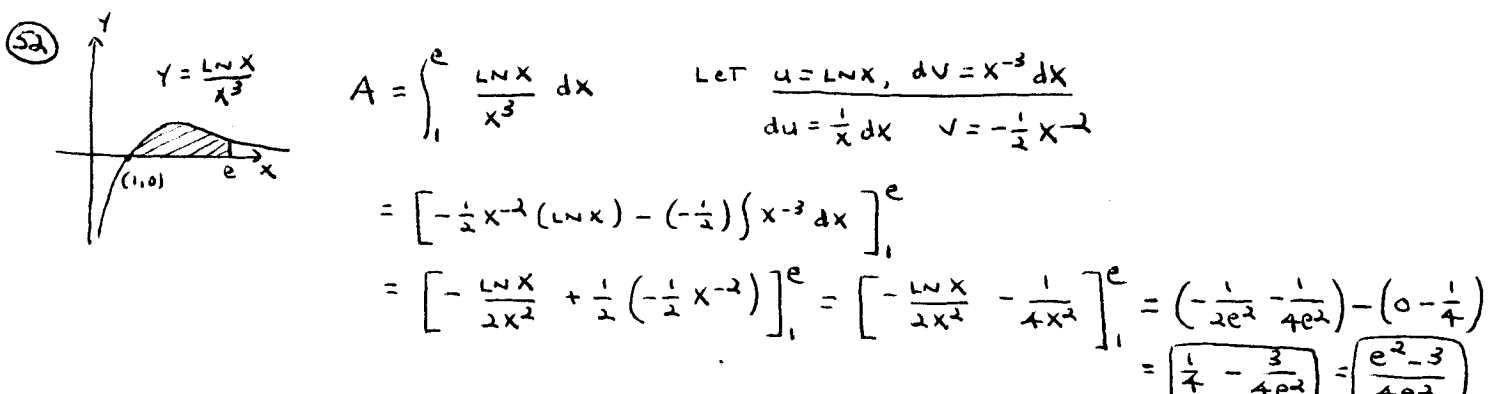 52
Y
Y = LN X / X³
(1,0) e X
A = ∫₁ᵉ LN X / X³ dX
LET u = LN X, dV = X⁻³ dX
du = 1/X dX V = -1/2 X⁻²
= [ -1/2 X⁻² (LN X) - (-1/2) ∫ X⁻³ dX ]₁ᵉ
= [ - LN X / 2X² + 1/2 (-1/2 X⁻²) ]₁ᵉ = [ - LN X / 2X² - 1 / 4X² ]₁ᵉ = ( - 1 / 2e² - 1 / 4e² ) - ( 0 - 1/4 )
= 1/4 - 3 / 4e² = e² - 3 / 4e²